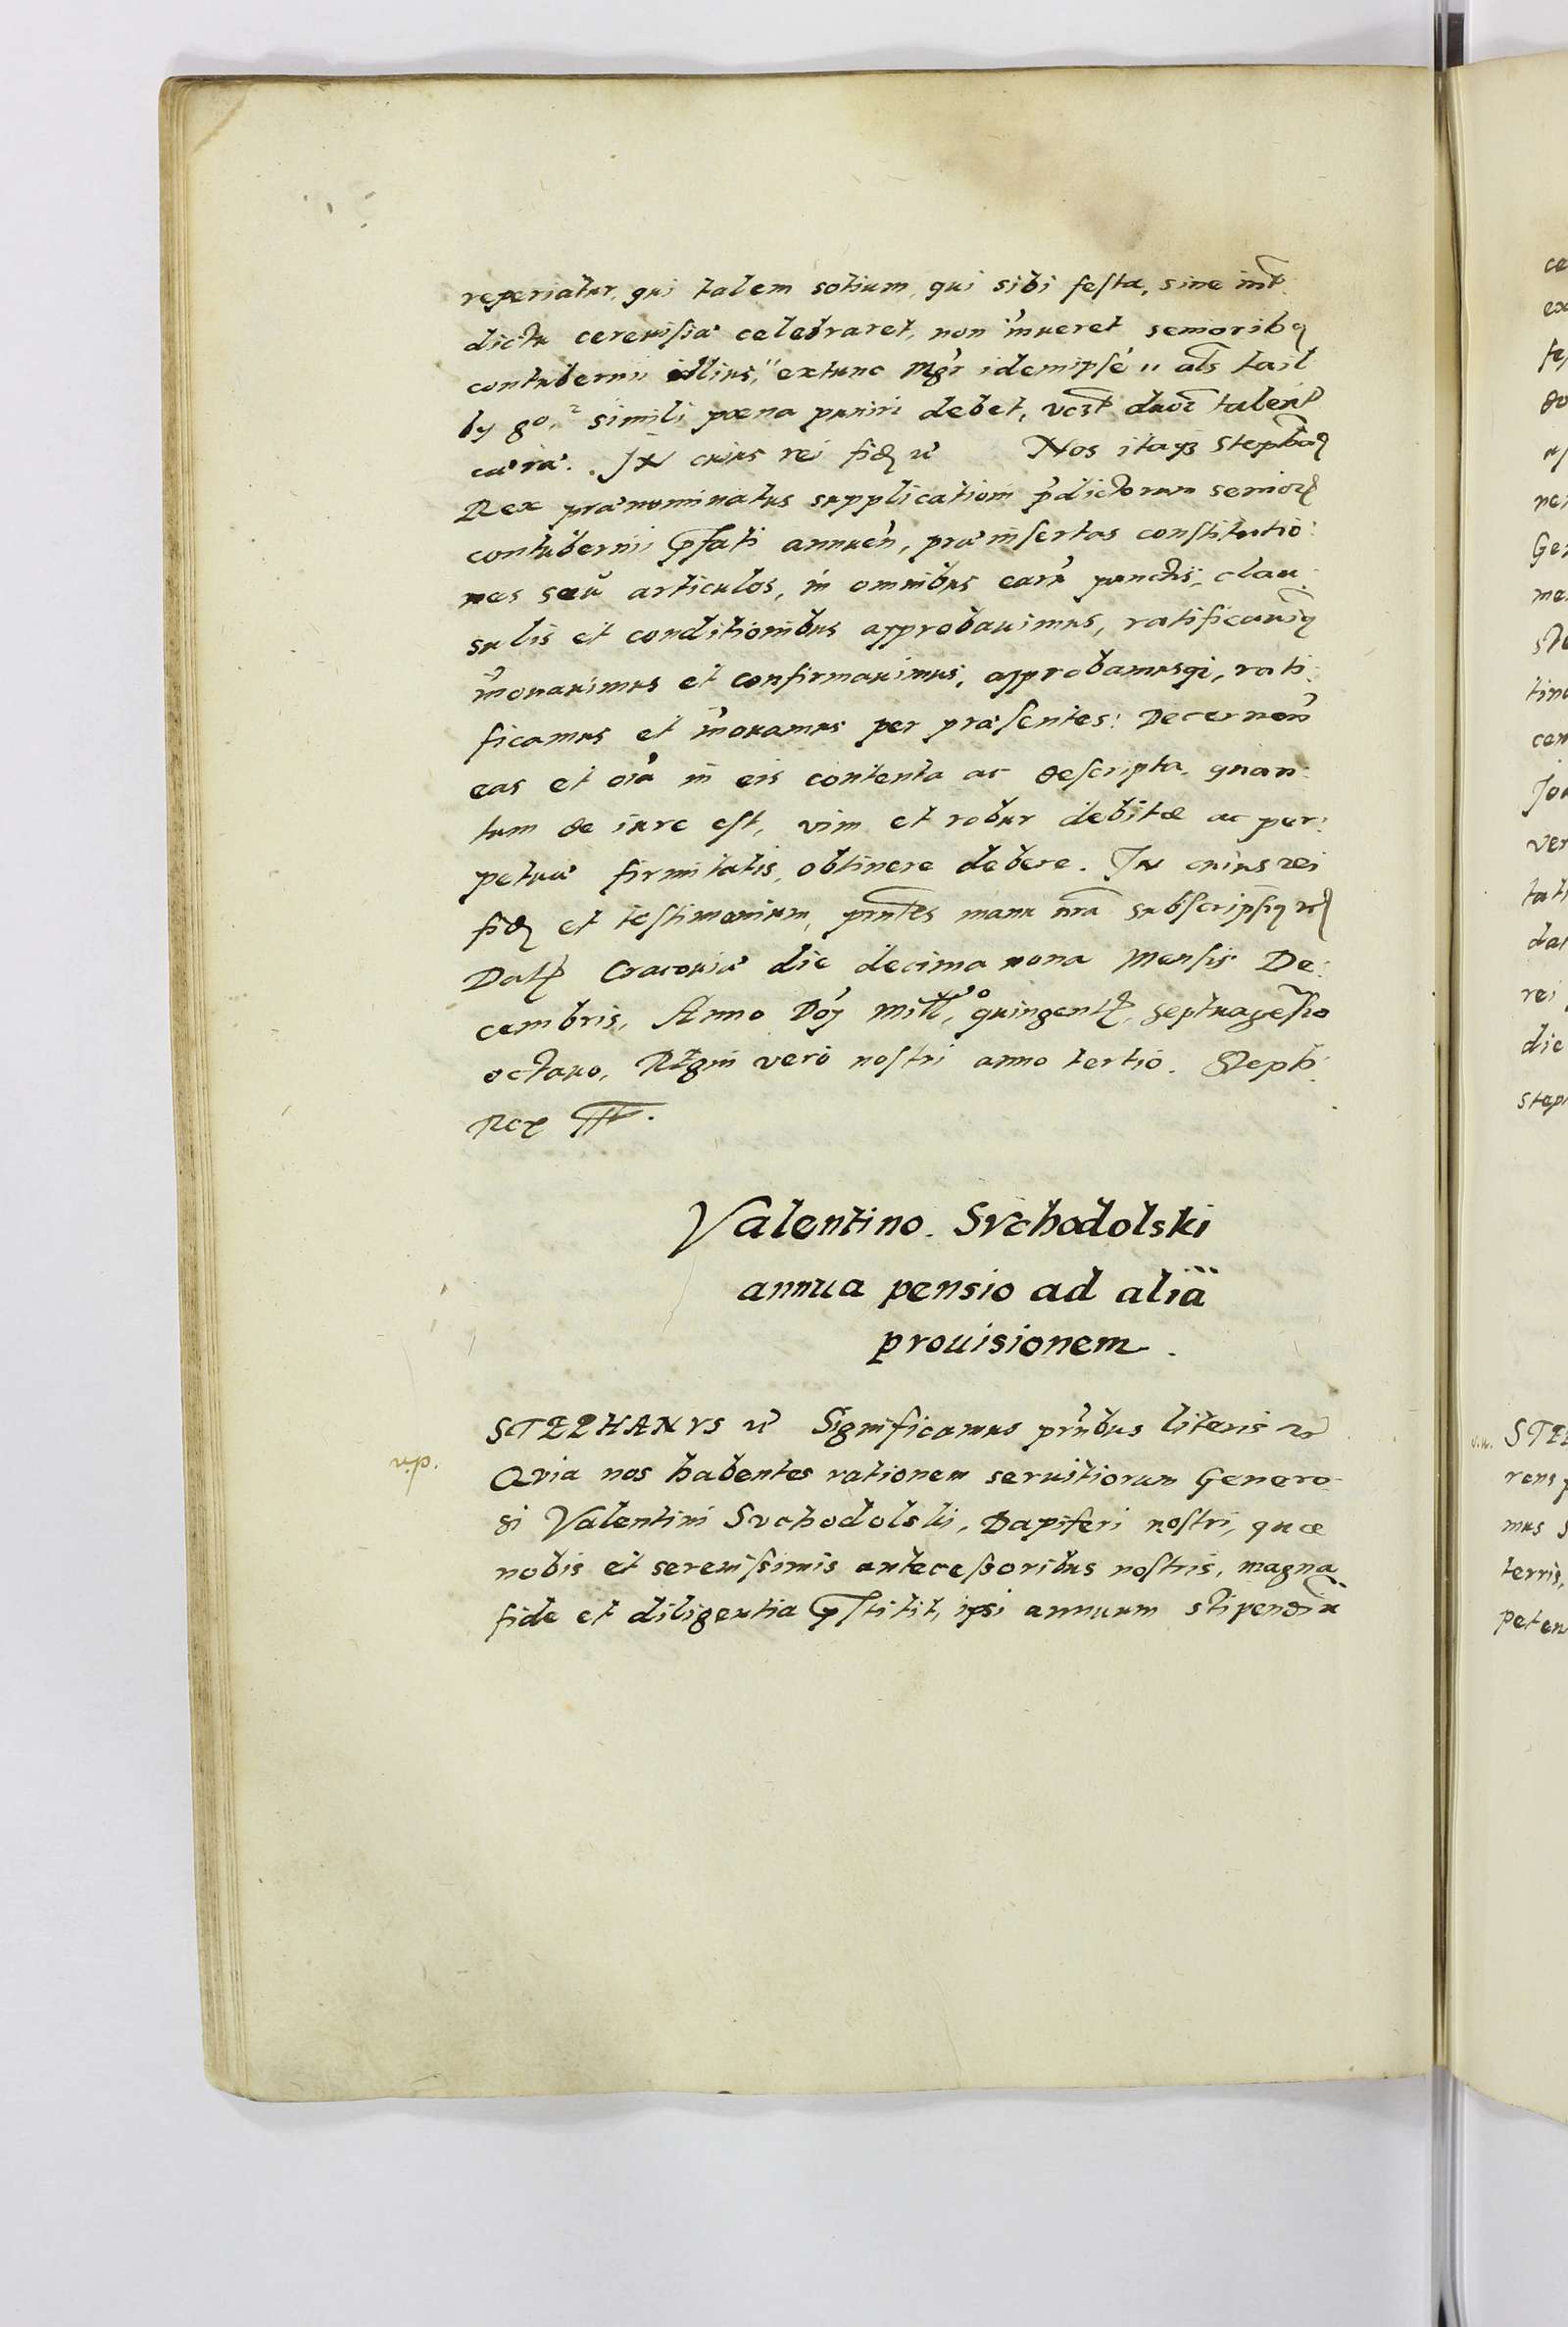 reperiatur, qui talem sotium, qui sibi festa, sine int̃
dictu cereuisiæ celebraret, non ĩnueret seniorib9
contubernii illius, extunc Mgr̃ idemipse als̃ tail
by go, simili pœna puniri debet, vczt duor̃ talent
ceræ. In cuius rei fidẽ etc̃ Nos itaqz Stephan9
Rex prænominatus supplicationi p̃dictorum senior̃
contubernii p̃fati annuen̄, præinsertas constitutio:
nes seũ articulos, in omnibus earũ punctis, clau:
sulis et conditionibus approbauimus, ratificauim9
ĩnouauimus et confirmauimus, approbamusqz, rati:
ficamus et ĩnouamus per præsentes: Decernen̄
eas et oĩa in eis contenta ac descripta, quan:
tum de iure est, vim et robur debitæ ac per:
petuæ firmitatis, obtinere debere. In cuius rei
fidẽ et testimonium, pñtes manu nr̃a subscripsim9 etc̃
Dat̃ Cracouiæ die decima nona Mensis De:
cembris, Anno Dñj Mill̃o, quingent̃o, septuagesio
octauo, Regni vero nostri anno tertio. Steph:
Rex
Valentino Svchodolski
annua pensio ad aliã
prouisionem.
STEPHANVS etc̃ Significamus pr̃ntibus literis etc̃
v.p.
Qvia nos habentes rationem seruitiorum Genero
si Valentini Svchodolski, Dapiferi nostri, quæ
nobis et serenissimis antecessoribus nostris, magna
fide et diligentia p̃stitit, ipsi annuum stipendiũ